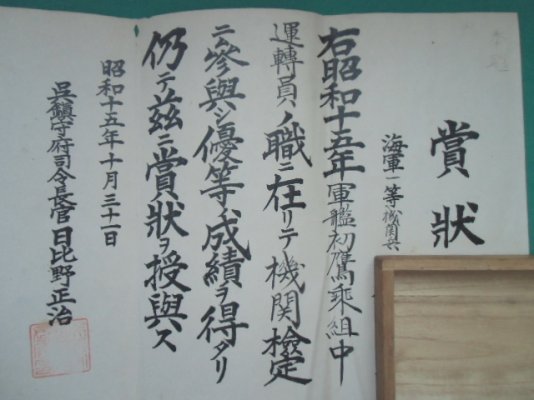 賞狀
海軍一等機関兵
右昭和十五年軍艦初鷹乘組中
運轉員ノ職ニ在リテ機関檢定
ニ參與シ優等ノ成績ヲ得タリ
仍テ茲ニ賞狀ヲ授與ス
昭和十五年十月三十一日
呉鎮守府司令長官日比野正治